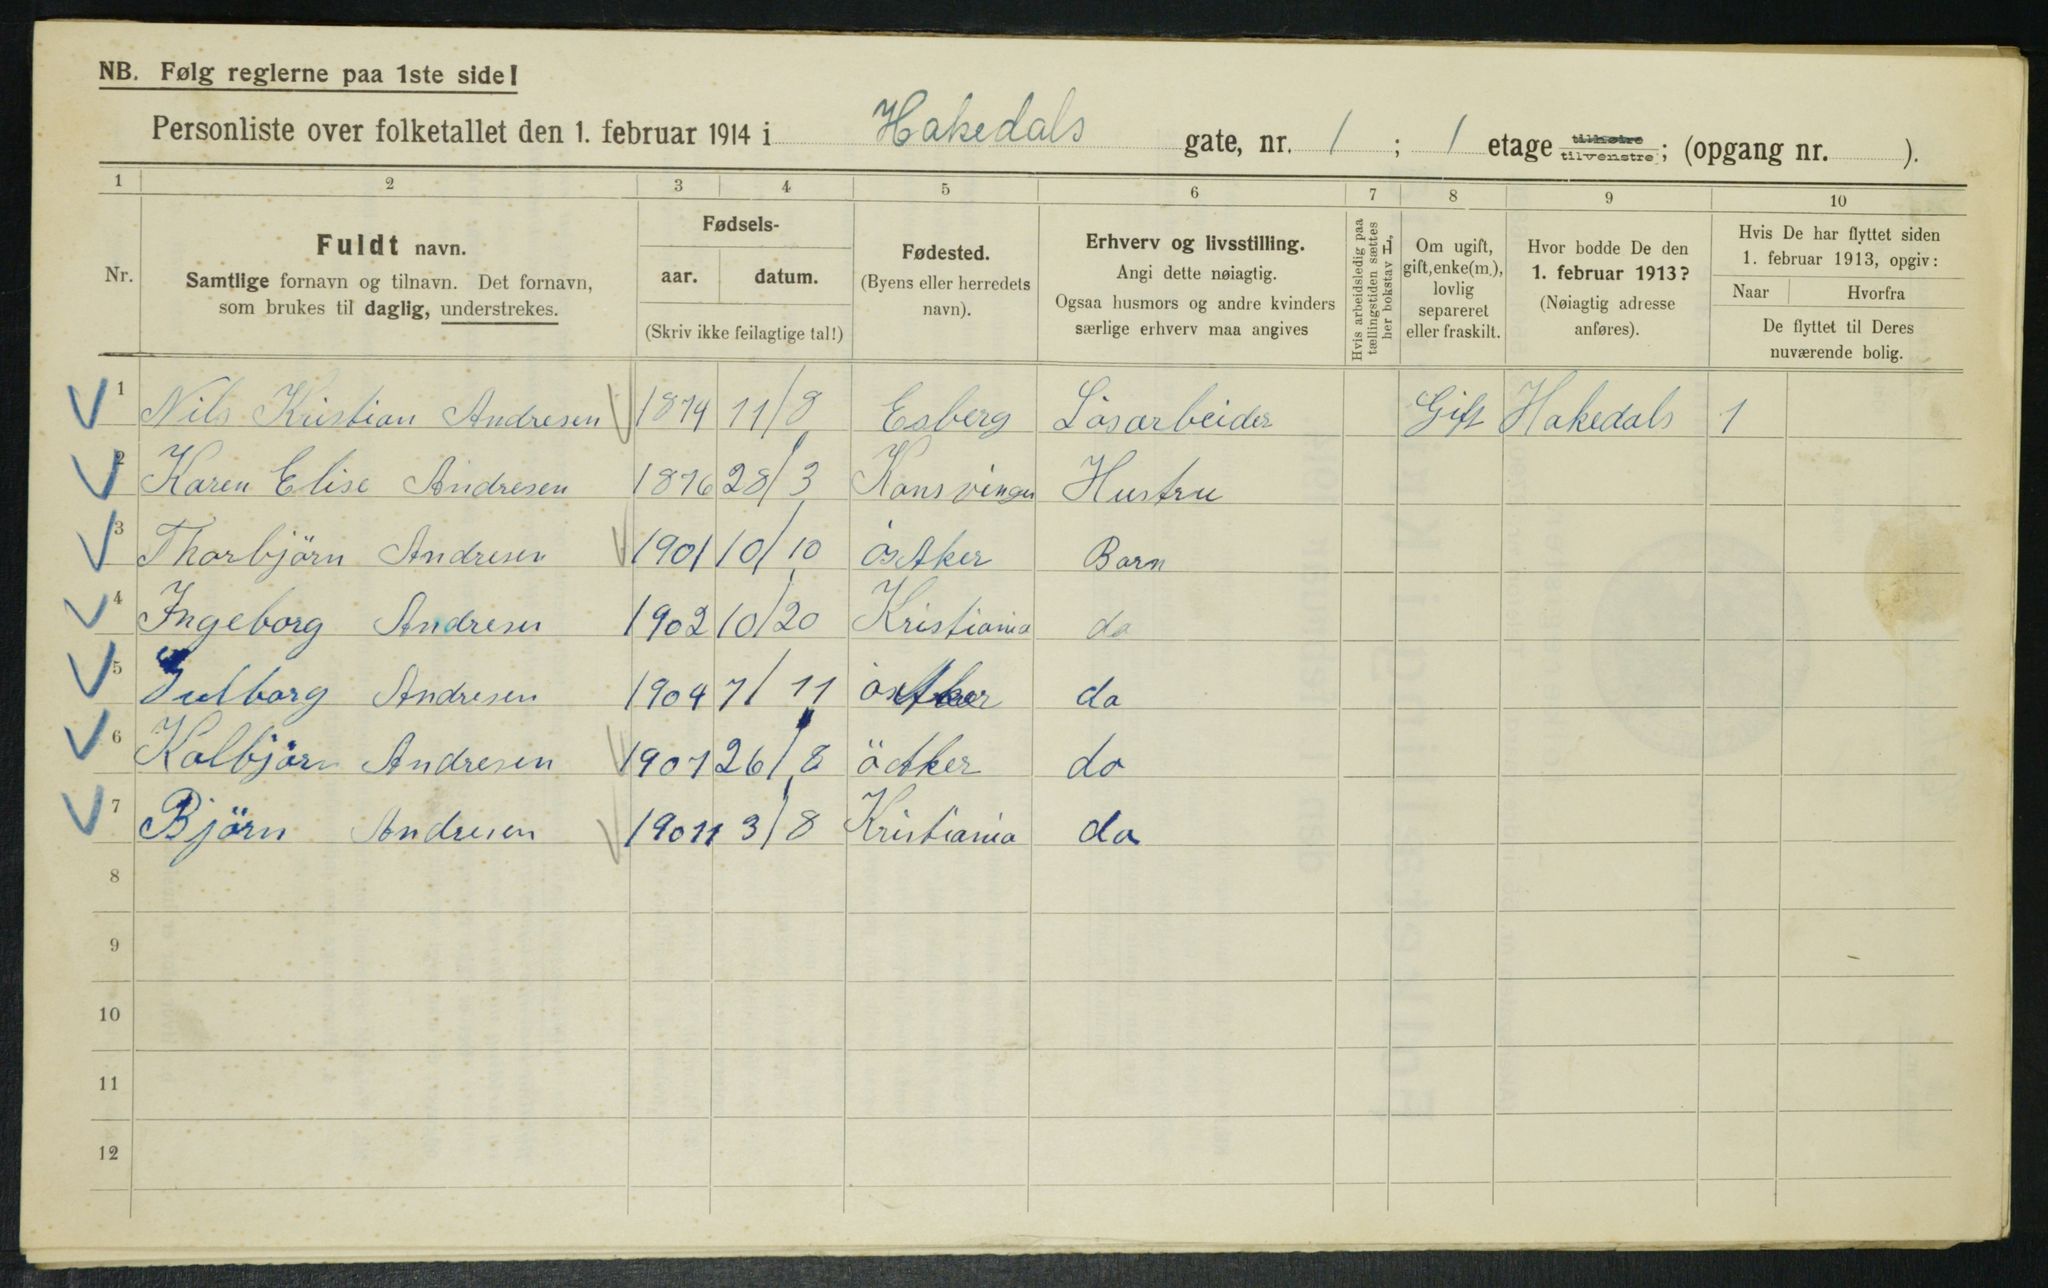 NB. Følg reglerne paa 1ste side!
Personliste over folketallet den 1. februar 1914 i Hakedals gate, nr. 1; 1 etage tilhøire tilvenstre; (opgang nr. ).
1 2 3 4 5 6 7 8 9 10
Nr.
Fuldt navn.
Samtlige fornavn og tilnavn. Det fornavn,
som brukes til daglig, understrekes.
Fødsels-
aar. datum.
(Skriv ikke feilagtige tal!)
Fødested.
(Byens eller herredets
navn).
Erhverv og livsstilling.
Angi dette nøiagtig.
Ogsaa husmors og andre kvinders
særlige erhverv maa angives
Hvis arbeidsledig paa
tællingstiden sættes
her bokstav L,
Om ugift,
gift, enke(m.),
lovlig
separeret
eller fraskilt.
Hvor bodde De den
1. februar 1913?
(Nøiagtig adresse
anføres).
Hvis De har flyttet siden
1. februar 1913, opgiv:
Naar Hvorfra
De flyttet til Deres
nuværende bolig.
1 Nils Kristian Andresen 1874 11/8 Esberg Løsarbeider Gift Hakedals 1
2 Karen Elise Andresen 1876 28/3 Konsvinger Hustru
3 Thorbjörn Andresen 1901 10/10 ØsAker Barn
4 Ingeborg Andresen 1902 10/20 Kristiania do
5 Andresen 1904 7/11 do
6 Kolbjörn Andresen 1907 26/8 do
7 Björn Andresen 19011 3/8 Kristiania do
8
9
10
11
12